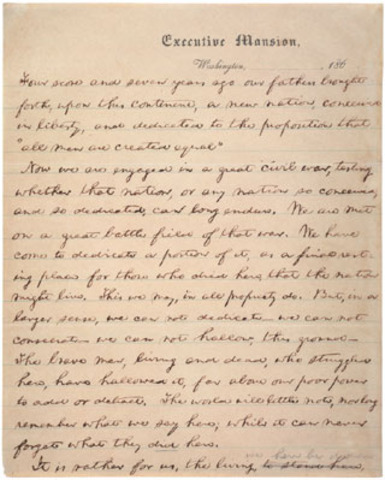 Executive Mansion,
Washington, , 186
Four score and seven years ago our fathers brought
forth, upon this continent, a new nation, conceived
in liberty, and dedicated to the proposition that
"all men are created equal"
Now we are engaged in a great civil war, testing
whether that nation, or any nation so conceived,
and so dedicated, can long endure. We are met
on a great battle field of that war. We have
come to dedicate a portion of it, as a final rest-
ing place for those who died here, that the nation
might live. This we may, in all propriety do. But, in a
larger sense, we can not dedicate — we can not
consecrate — we can not hallow, this ground —
The brave men, living and dead, who struggled
here, have hallowed it, far above our poor power
to add or detract. The world will little note, nor long
remember what we say here; while it can never
forget what they did here.
we here be
It is rather for us, the living, to stand here,